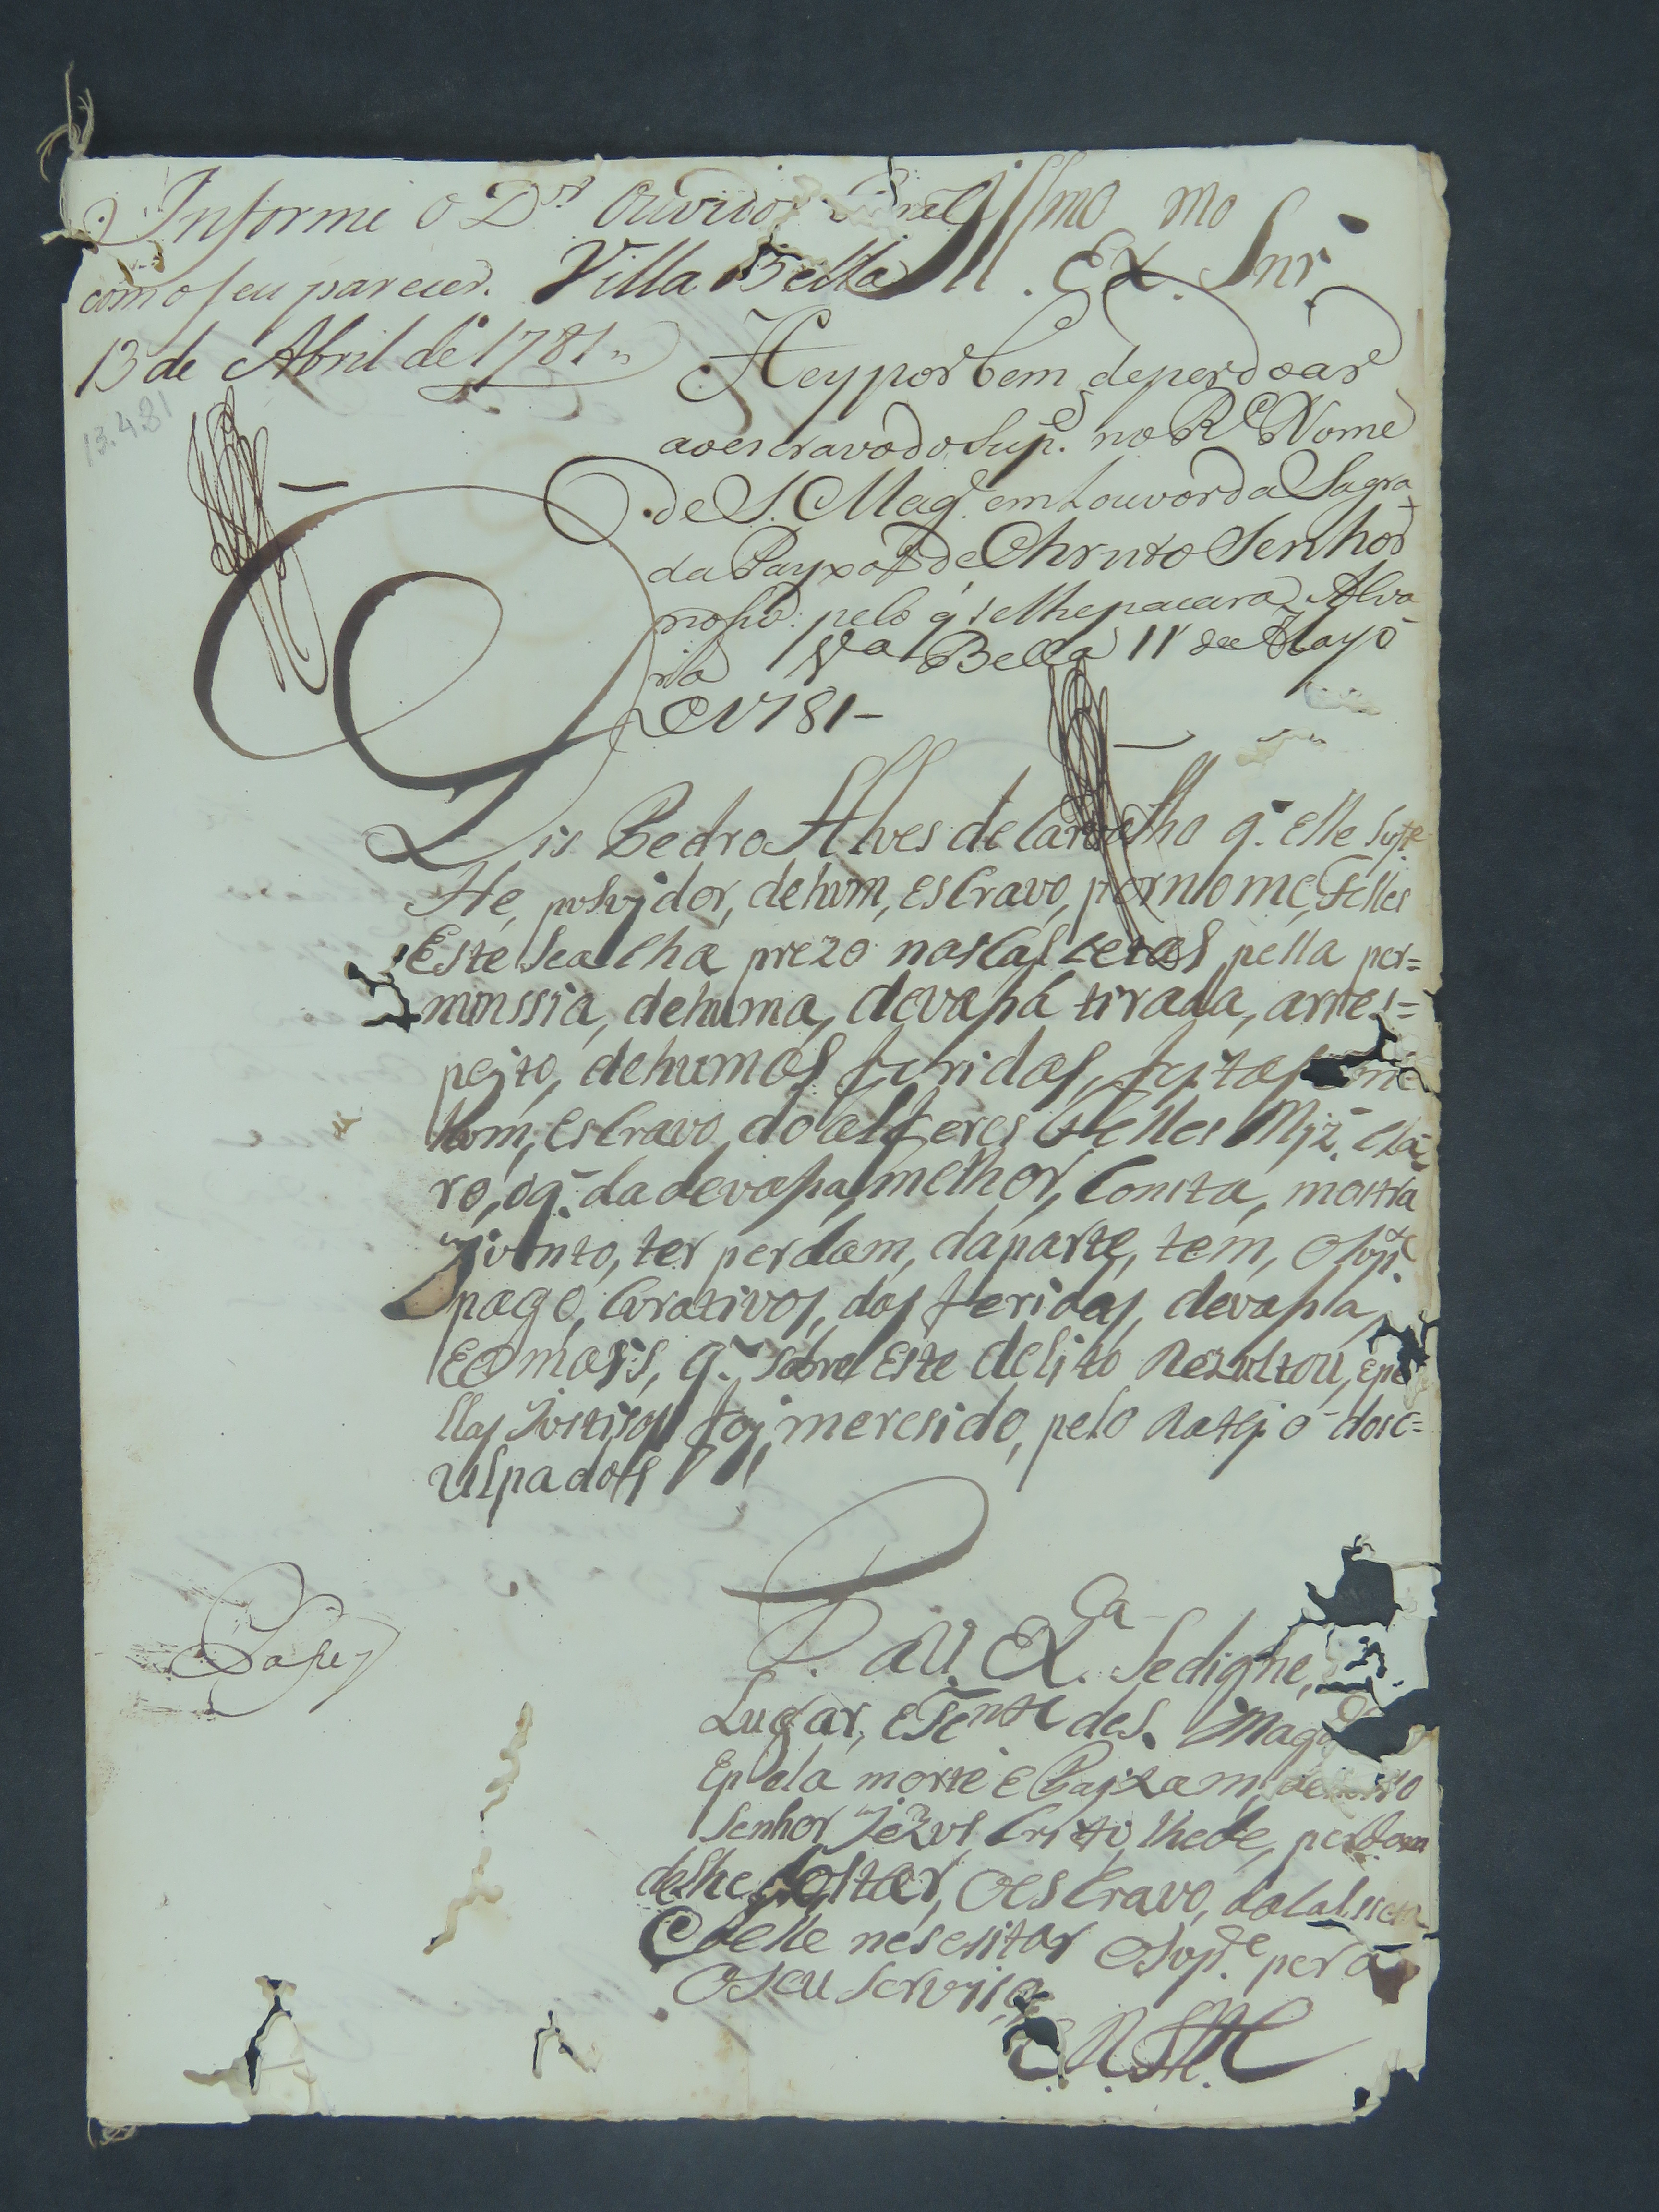 Informe o D.or Ouvidor
com o seu parecer. Villa Bella
13 de Abril de 1781,,
13.4.81
Ill.mo Ex.mo Snr.
Hey por bem de perdoar
ao escravo do Sup.e no R.l Nome
de S. Mag.e em Louvor da Sagra
da Payxaõ de Christo Senhor
nosso: pelo q̃ se lhe paçara Alva
rá V.a Bella 11 de Mayo
de 1781 –
Dis Pedro Alves de Carvalho q.̃ elle Sup.e
He, pusujdor, de hum, escravo, por nome, Felles
Este se acha prezo nas cas
minssia, de huma, devaça tirada, arres=
pejto, de humas feridas, fejtas
hum, escravo do alferes
ro, o q.̃ da devaça, melhor, Consta, mostra
Jvonto, ter perdam, da parte, tem, o Sup.e
pago, Curativos, das feridas, devaça
E o majs, q.̃ sobre este delito Rezultou, e pe
llas Justisas foj meresido, pelo
ulpados
P. a V. Ex.Ca Se digne,
Lugar, e
E pela morte e Pajxam, de nosso
Senhor Jezus Cristo, lhe de, perdam
de lhe soltar, o escravo, da
E delle nesesitar o Sup.e pera
o seu servijso
E. R. M.
Passey